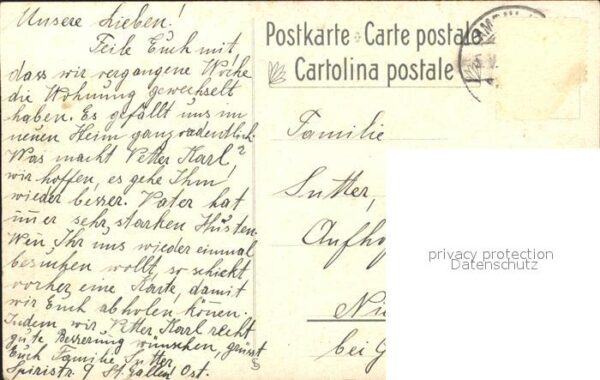 Unsere Lieben!
Teile Euch mit,
dass wir vergangene Woche
die Wohnung gewechselt
haben. Es gefällt uns im
neuen Heim ganz ordentlich.
Was macht Vetter Karl,?
wir hoffen, es gehe Ihm
wieder besser. Vater hat
immer sehr starken Husten.
Wen Ihr uns wieder einmal
besuchen wollt, so schickt
vorher eine Karte, damit
wir Euch abholen können.
Indem wir Vetter Karl recht
gute Besserung wünschen, grüsst
Euch Familie Sutter
9 St. Gallen Ost.
Postkarte Carte postale
Cartolina postale
Familie
Sutter,
Aufho
Ni
bei G
privacy protection
Datenschutz